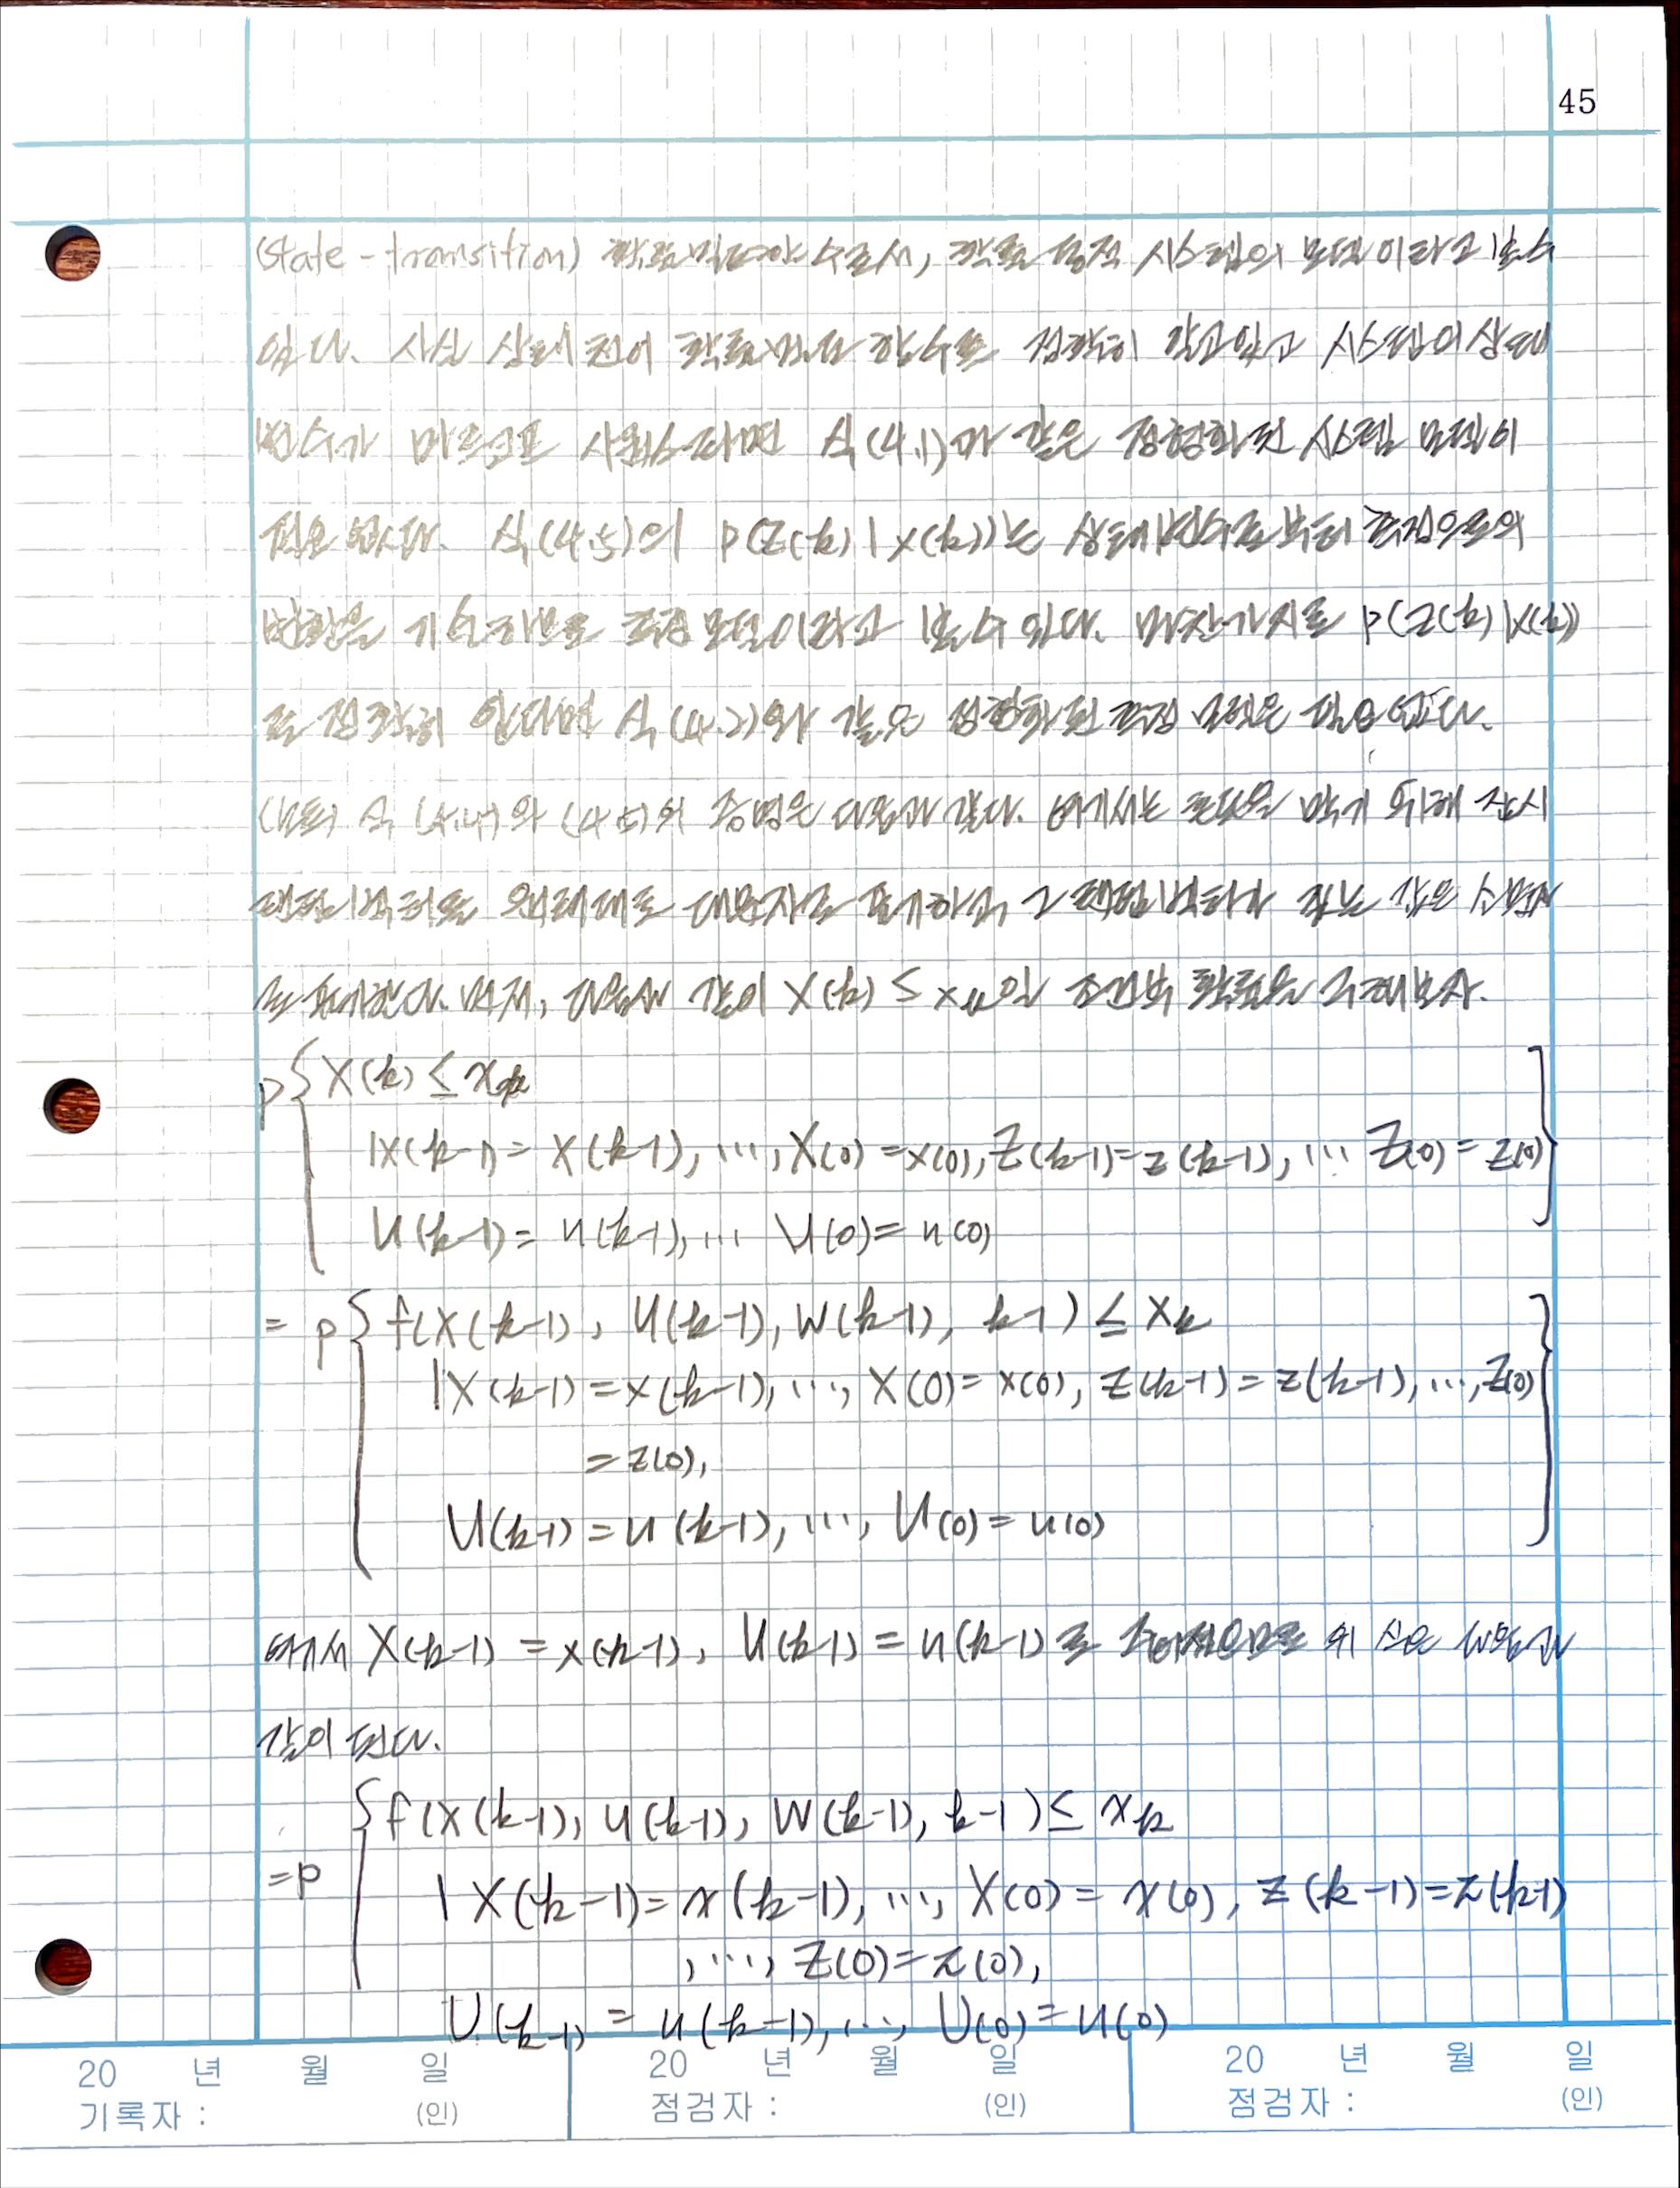 45
(state-transition) 확률밀도함수로서, 확률 동적 시스템의 모델이라고 볼 수
있다. 사실 상태 천이 확률밀도 함수를 정확히 알고있고 시스템의 상태
변수가 마르코프 시퀀스라면 식(4.1)과 같은 정형화된 시스템 모델이
필요 없다. 식(4.5)의 p(z(k)|x(k))는 상태변수로부터 측정으로의
변환을 기술하므로 측정 모델이라고 볼 수 있다. 마찬가지로 p(z(k)|x(k))
를 정확히 안다면 식(4.2)와 같은 정형화된 측정 모델은 필요 없다.
식 (4.4)와 (4.5)의 증명은 다음과 같다. 여기서는 혼란을 막기 위해 잠시
랜덤벡터를 원래대로 대문자로 표기하고, 그 랜덤벡터가 갖는 값은 소문자
로 표기한다. 먼저, 다음과 같이 X(k) ≤ x_k인 조건부 확률을 구해보자.
p{X(k) ≤ x_k
|X(k-1) = x(k-1), ..., X(0) = x(0), Z(k-1) = z(k-1), ... Z(0) = z(0)
U(k-1) = u(k-1), ... U(0) = u(0)}
= p{f(X(k-1), U(k-1), W(k-1), k-1) ≤ x_k
|X(k-1) = x(k-1), ..., X(0) = x(0), Z(k-1) = z(k-1), ..., Z(0)
= z(0),
U(k-1) = u(k-1), ..., U(0) = u(0)}
여기서 X(k-1) = x(k-1), U(k-1) = u(k-1)로 주어졌으므로 위 식은 다음과
같이 된다.
=p{f(x(k-1), u(k-1), W(k-1), k-1) ≤ x_k
|X(k-1) = x(k-1), ..., X(0) = x(0), Z(k-1) = z(k-1)
, ..., Z(0) = z(0),
U(k-1) = u(k-1), ..., U(0) = u(0)
20 년 월 일 20 년 월 일 20 년 월 일
기록자 : (인) 점검자 : (인) 점검자 : (인)